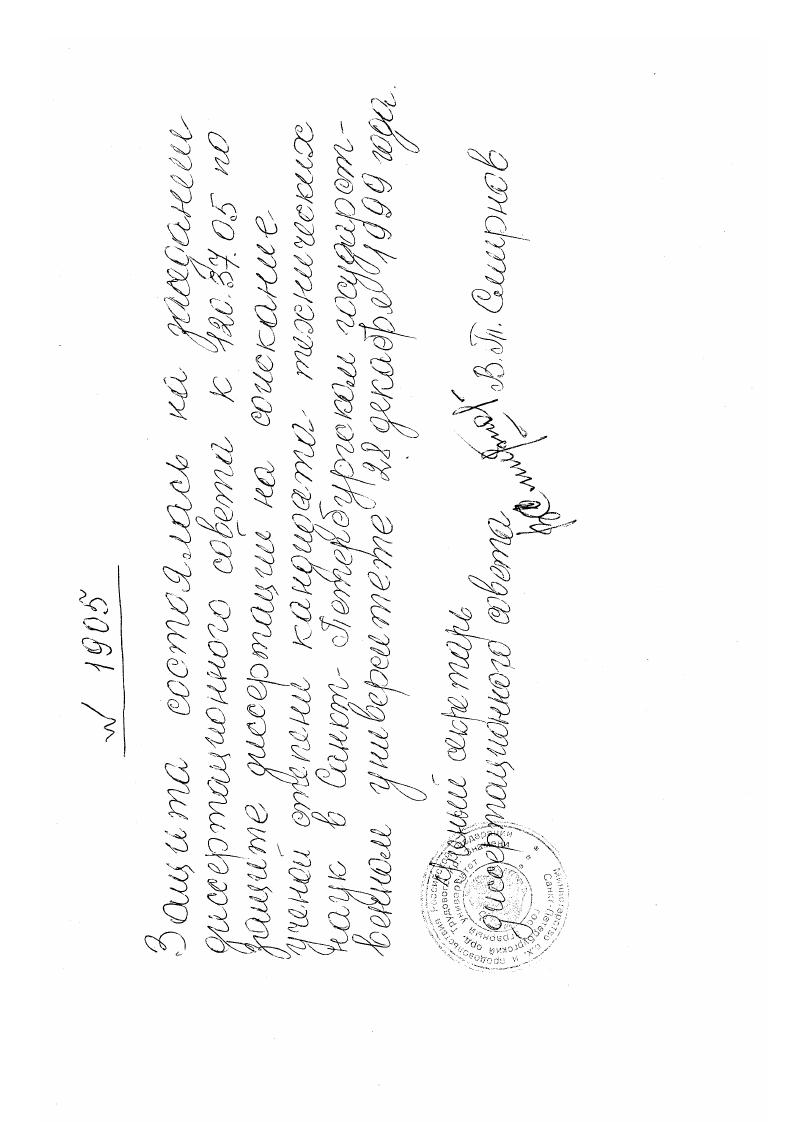 № 1905
Защита состоялась на заседании
диссертационного совета К 120.37.05 по
защите диссертации на соискание
ученой степени кандидата технических
наук в Санкт-Петербургском государст-
венном университете 28 декабря 1999 года.
Ученый секретарь
диссертационного совета В.П. Смирнов
Министерство с.х. и продовольствия Российской Федерации
Санкт-Петербургский орд. Трудового